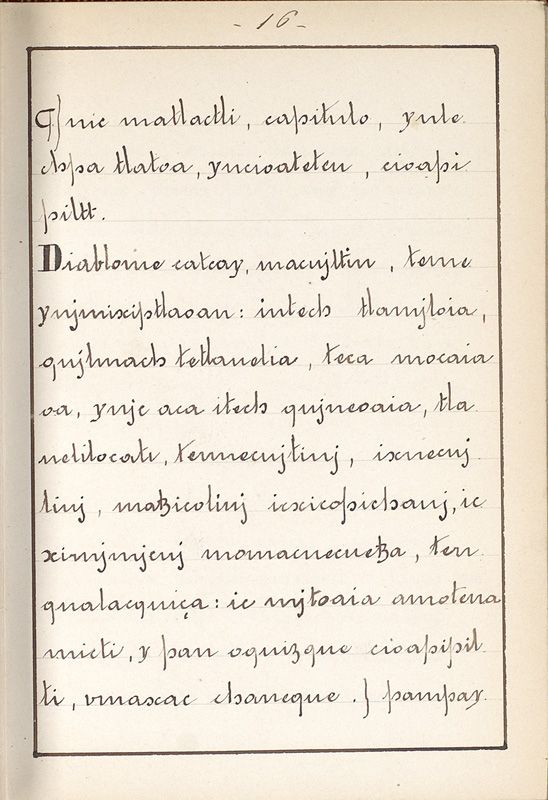 - 16 -
¶ Jnic matlactli, capitulo, ynte
chpa tlatoa, yncioateteu, cioapi
piltt.
Diablome catcay, macujltin, teme
ynjmixiptlaoan: intech tlamjloia,
qujlmach tetlanelia, teca mocaia
oa, ynjc aca itech qujneoaia, tla
nelilocati, tennecujltinj, ixnecuj
linj, matzicolinj icxicopichauj, ic
ximjmjcuj momacuecuetza, ten
qualacquiça: ic mjtoaia amotena
micti, y pan oquizque cioapipil
ti, vmaxac chaneque.} pampay.